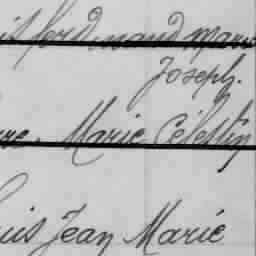 ferdinand marie
Joseph.
Marie Célestin
uis Jean Marie